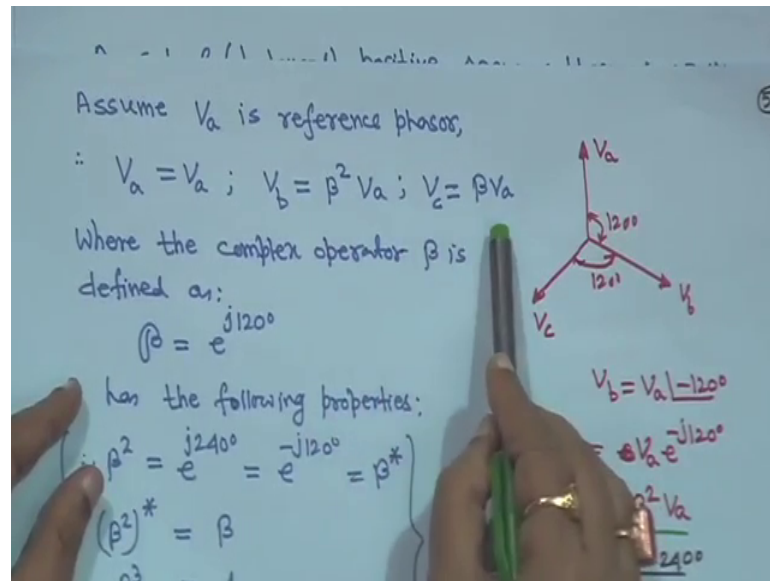 Assume Va is reference phasor,
∴ Va = Va ; Vb = β² Va ; Vc = βVa
Where the complex operator β is
defined as:
β = e^j120°
has the following properties:
β² = e^j240° = e^-j120° = β*
(β²)* = β
Va
120°
120°
Vb
Vc
Vb = Va∠-120°
= Va e^-j120°
β² Va
240°
5